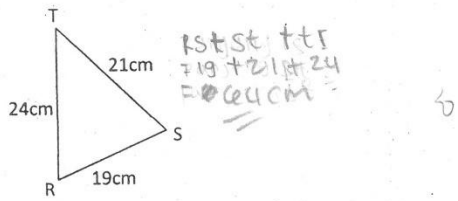 T
21cm
24cm
S
R
19cm
RS + St + tr
= 19 + 21 + 24
= 64cm